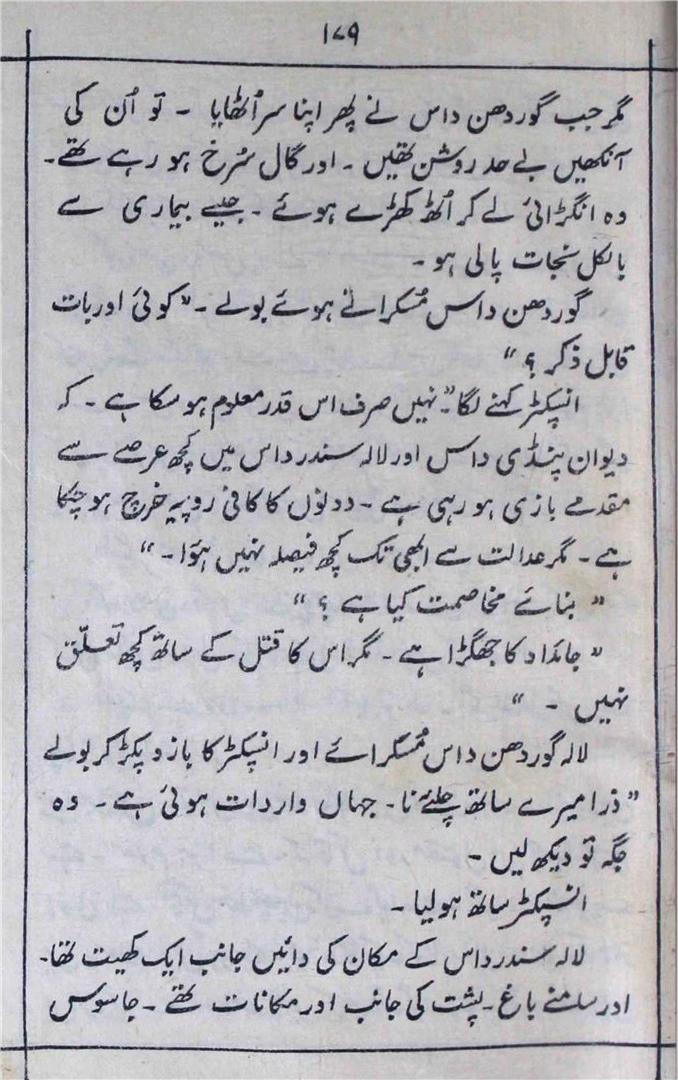 ۱۷۹
مگر جب گوردھن داس نے پھر اپنا سر اُٹھایا ۔ تو اُن کی
آنکھیں بے حد روشن تھیں ۔ اور گال سُرخ ہو رہے تھے ۔
وہ انگڑائی لے کر اُٹھ کھڑے ہوئے ۔ جیسے بیماری سے
بالکل نجات پالی ہو ۔
گوردھن داس مُسکراتے ہوئے بولے ۔ " کوئی اور بات
قابل ذکر ؟ "
انسپکٹر کہنے لگا " ۔ نہیں صرف اس قدر معلوم ہو سکا ہے ۔ کہ
دیوان پنڈی داس اور لالہ سندر داس میں کچھ عرصے سے
مقدمے بازی ہو رہی ہے ۔ دونوں کا کافی روپیہ خرچ ہو چکا
ہے ۔ مگر عدالت سے ابھی تک کچھ فیصلہ نہیں ہوٴا ۔ "
" بنائے مخاصمت کیا ہے ؟ "
" جائداد کا جھگڑا ہے ۔ مگر اس کا قتل کے ساتھ کچھ تعلّق
نہیں ۔ "
لالہ گوردھن داس مُسکرائے اور انسپکٹر کا بازو پکڑ کر بولے
" ذرا میرے ساتھ چلئے نا ۔ جہاں واردات ہوئی ہے ۔ وہ
جگہ تو دیکھ لیں ۔
انسپکٹر ساتھ ہولیا ۔
لالہ سندر داس کے مکان کی دائیں جانب ایک کھیت تھا ۔
اور سامنے باغ ۔ پشت کی جانب اور مکانات تھے ۔ جاسوس